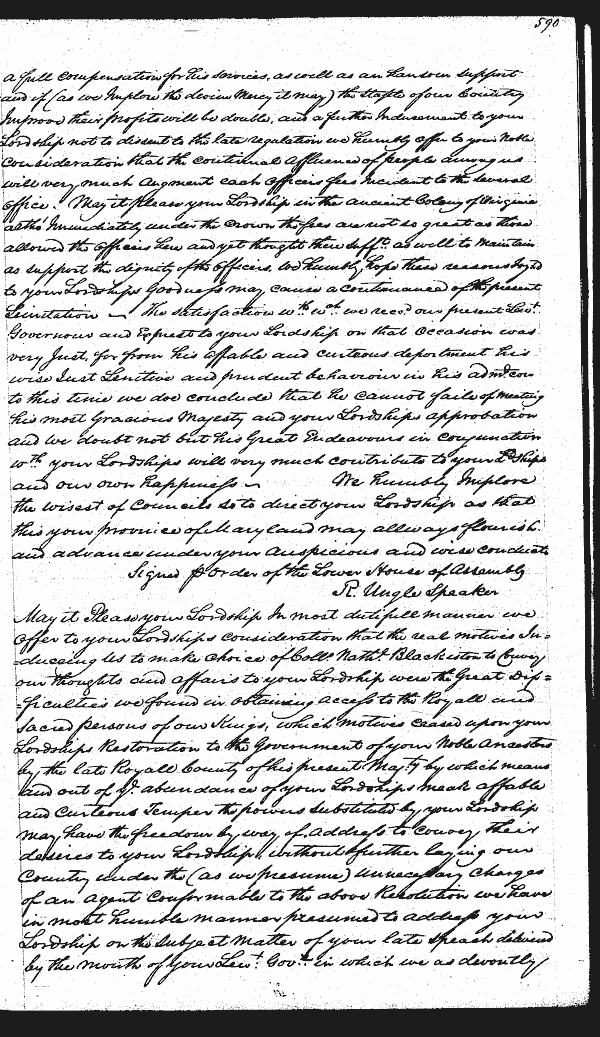 590
a full compensation for his services, as well as an hansom support
and if (as we Implore the devine Mercy it may) the staple of our Country
Improve their profits will be double, and a further Inducement to your
Lordship not to dissent to the late regulation we humbly offer to your Noble
Consideration that the continual affluence of people among us
will very much Augment each officers fees Incident to the several
office. May it please your Lordship in the ancient Colony of Virginia
altho' Immediately under the Crown the fees are not so great as those
allowed the officers here and yet thought there suff.t as well to maintain
as support the dignity of the officers, We humbly hope these reasons
to your Lordships Goodness may cause a continuance of the present
Limitation The satisfaction w.th w.ch we rec.d our present Lew.t
Governour and Exprest to your Lordship on that occasion was
very Just, for from his affable and curteous deportment his
wise Just Lenitive and prudent behaviour in his adm.con
to this time we doe conclude that he cannot faile of meeting
his most Gracious Majesty and your Lordships approbation
and we doubt not but his Great Endeavours in conjunction
w.th your Lordships will very much contribute to your L.dShips
and our own happiness We humbly Implore
the wisest of Councels so to direct your Lordship as that
this your province of Maryland may allways flourish
and advance under your Auspicious and wise conduct
Signed p Order of the Lower House of Assembly
R. Ungle Speaker
May it Please your Lordship In most dutifull manner we
offer to your Lordships consideration that the real motives In=
=duceing Us to make choice of Coll.o Nath.l Blackiston to Convey
our thoughts and affairs to your Lordship were the Great Dif=
=ficulties we found in obtaining access to the Royall and
sacred persons of our Kings, which motives ceased upon your
Lordships Restoration to the Government of your Noble Ancestors
by the late Royall bounty of his present Maj.ty by which means
and out of y.e abundance of your Lordships meek affable
and Curteous Temper the powers substituted by your Lordship
may have the freedour by way of Address to convey their
desires to your Lordship, without further laying our
Country under the (as we presume) unnecessary Charges
of an Agent Conformable to the above Resolution we have
in most humble manner presumed to address your
Lordship on the Subject Matter of your late speach delivered
by the mouth of your Lew.t Gov.r in which we as devoutly